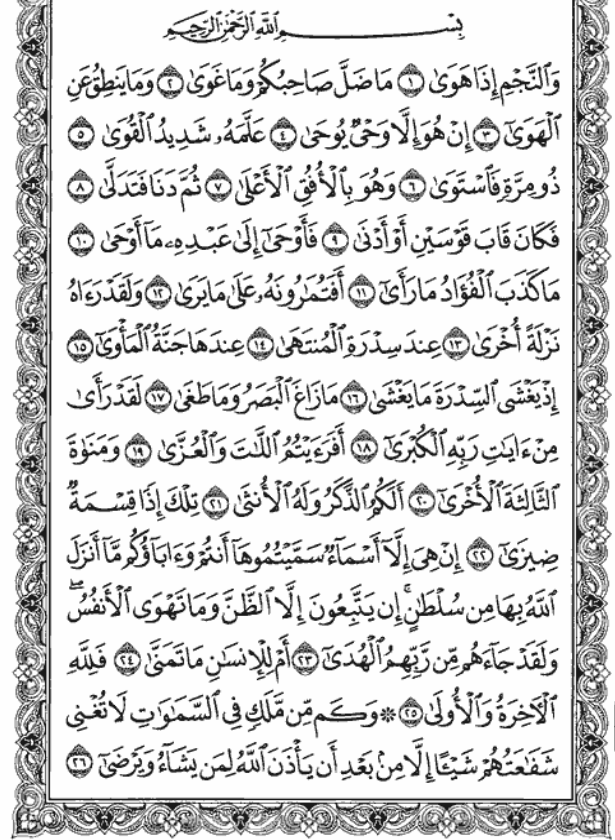 بِسْمِ اللَّهِ الرَّحْمَٰنِ الرَّحِيمِ
وَالنَّجْمِ إِذَا هَوَىٰ ١ مَا ضَلَّ صَاحِبُكُمْ وَمَا غَوَىٰ ٢ وَمَا يَنطِقُ عَنِ
الْهَوَىٰٓ ٣ إِنْ هُوَ إِلَّا وَحْيٌ يُوحَىٰ ٤ عَلَّمَهُۥ شَدِيدُ الْقُوَىٰ ٥
ذُو مِرَّةٍ فَاسْتَوَىٰ ٦ وَهُوَ بِالْأُفُقِ الْأَعْلَىٰ ٧ ثُمَّ دَنَا فَتَدَلَّىٰ ٨
فَكَانَ قَابَ قَوْسَيْنِ أَوْ أَدْنَىٰ ٩ فَأَوْحَىٰٓ إِلَىٰ عَبْدِهِۦ مَآ أَوْحَىٰ ١٠
مَا كَذَبَ الْفُؤَادُ مَا رَأَىٰٓ ١١ أَفَتُمَٰرُونَهُۥ عَلَىٰ مَا يَرَىٰ ١٢ وَلَقَدْ رَءَاهُ
نَزْلَةً أُخْرَىٰ ١٣ عِندَ سِدْرَةِ الْمُنتَهَىٰ ١٤ عِندَهَا جَنَّةُ الْمَأْوَىٰٓ ١٥
إِذْ يَغْشَى السِّدْرَةَ مَا يَغْشَىٰ ١٦ مَا زَاغَ الْبَصَرُ وَمَا طَغَىٰ ١٧ لَقَدْ رَأَىٰ
مِنْ ءَايَٰتِ رَبِّهِ الْكُبْرَىٰٓ ١٨ أَفَرَءَيْتُمُ اللَّٰتَ وَالْعُزَّىٰ ١٩ وَمَنَوٰةَ
الثَّالِثَةَ الْأُخْرَىٰٓ ٢٠ أَلَكُمُ الذَّكَرُ وَلَهُ الْأُنثَىٰ ٢١ تِلْكَ إِذًا قِسْمَةٌ
ضِيزَىٰٓ ٢٢ إِنْ هِيَ إِلَّآ أَسْمَآءٌ سَمَّيْتُمُوهَآ أَنتُمْ وَءَابَآؤُكُم مَّآ أَنزَلَ
اللَّهُ بِهَا مِن سُلْطَٰنٍ ۚ إِن يَتَّبِعُونَ إِلَّا الظَّنَّ وَمَا تَهْوَى الْأَنفُسُ ۖ
وَلَقَدْ جَآءَهُم مِّن رَّبِّهِمُ الْهُدَىٰٓ ٢٣ أَمْ لِلْإِنسَٰنِ مَا تَمَنَّىٰ ٢٤ فَلِلَّهِ
الْءَاخِرَةُ وَالْأُولَىٰ ٢٥ ۞ وَكَم مِّن مَّلَكٍ فِي السَّمَٰوَٰتِ لَا تُغْنِي
شَفَٰعَتُهُمْ شَيْـًٔا إِلَّا مِنۢ بَعْدِ أَن يَأْذَنَ اللَّهُ لِمَن يَشَآءُ وَيَرْضَىٰٓ ٢٦